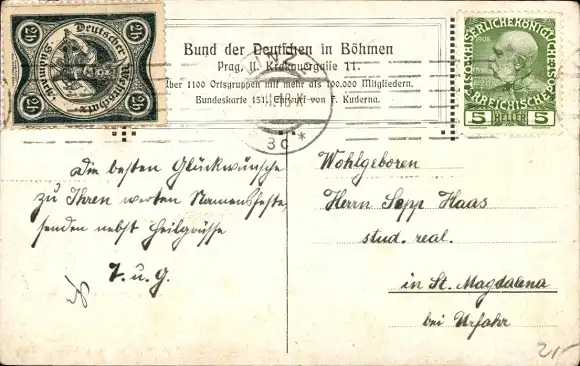 Deutscher
Schulverein
20
20
20
20
Bund der Deutschen in Böhmen
Prag, II. Krakauergasse 11.
Über 1100 Ortsgruppen mit mehr als 100.000 Mitgliedern.
Bundeskarte 151. Entwurf von F. Kuderna.
KAISERLICHE KÖNIGLICHE
ÖSTERREICHISCHE POST
1908
5 HELLER 5
3c *
Die besten Glückwünsche
zu Ihrem werten Namensfeste,
senden nebst Heilgrüsse
F. u. G.
Wohlgeboren
Herrn Sepp Haas
stud. real.
in St. Magdalena
bei Urfahr
21,-